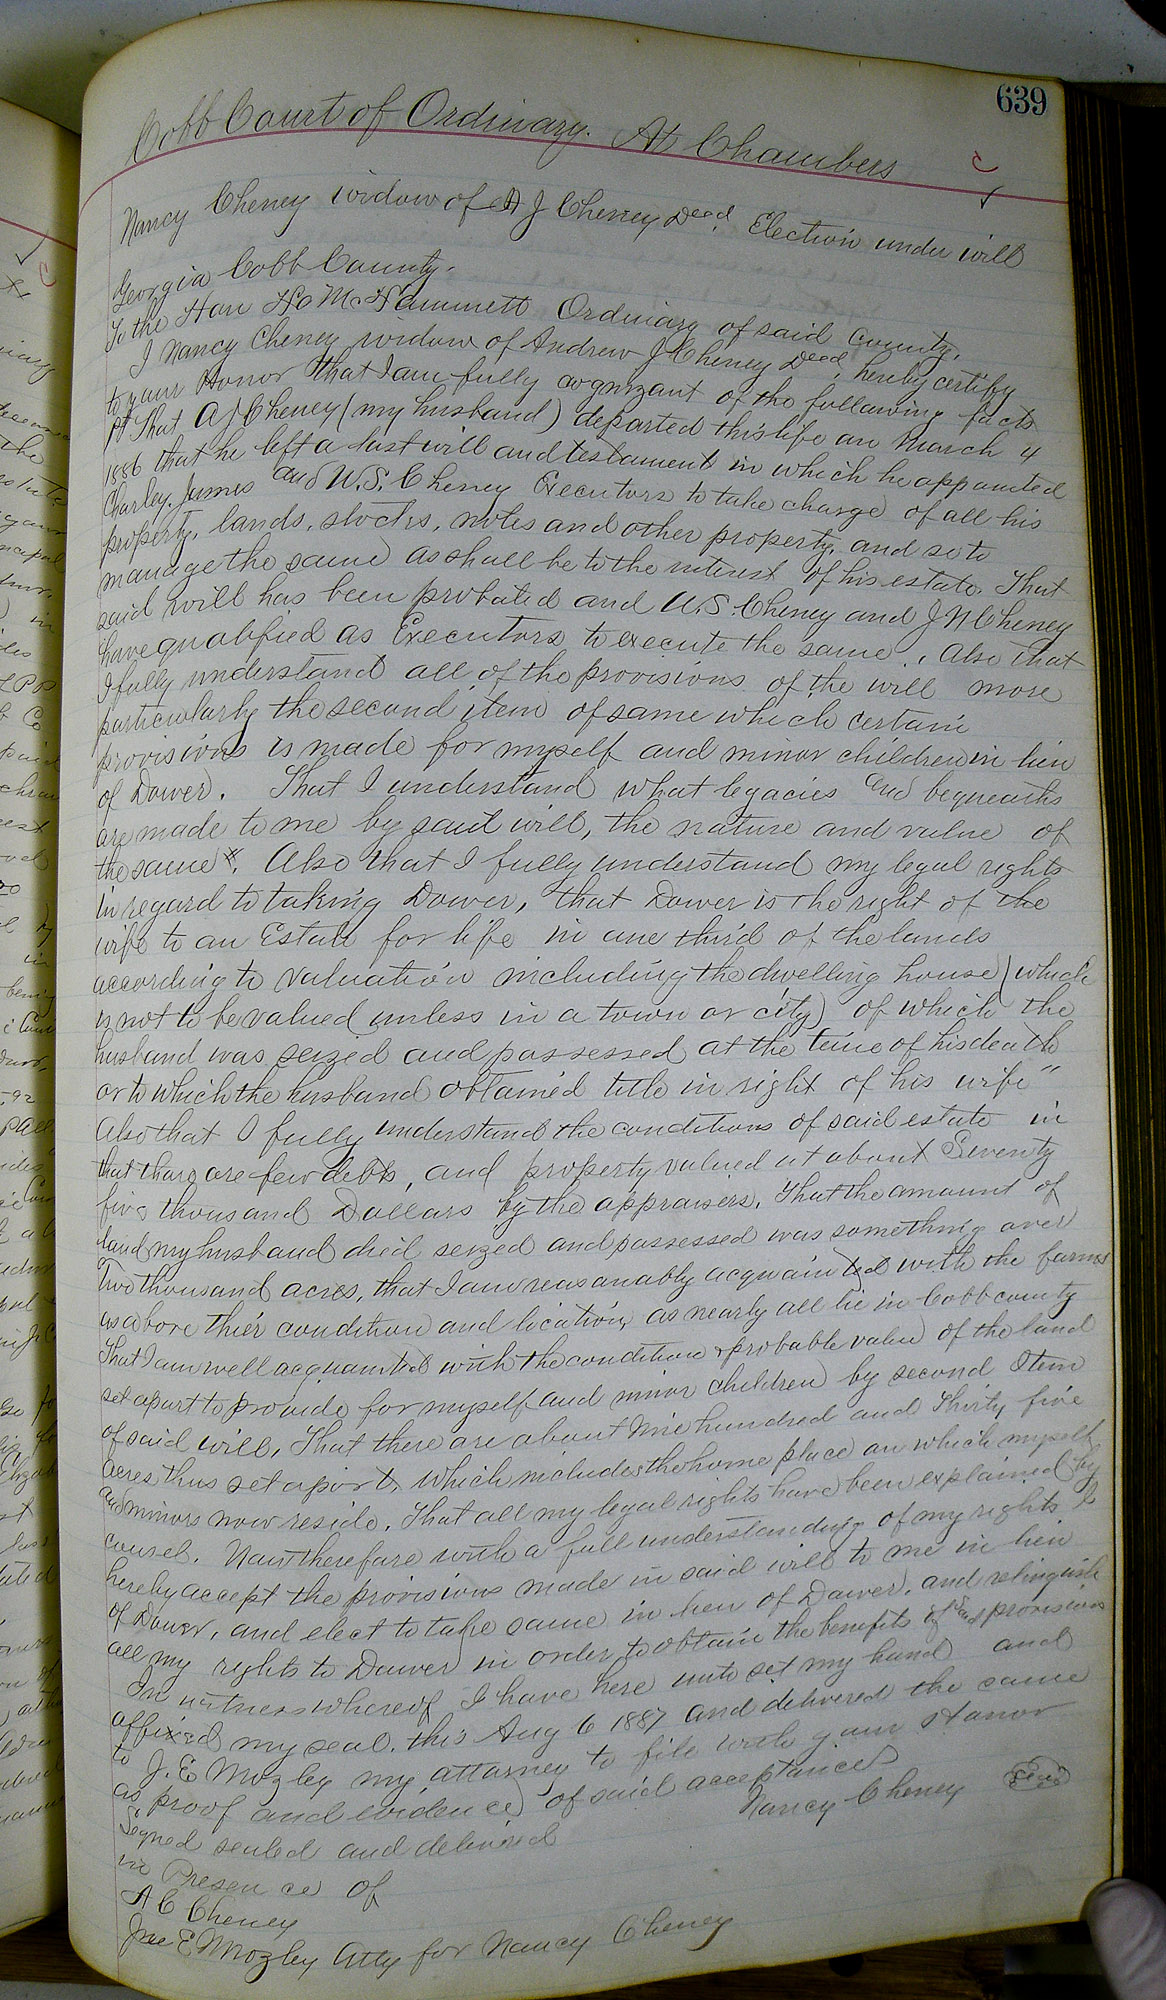 639
Cobb Court of Ordinary. At Chambers
Nancy Cheney widow of A J Cheney Decd. Election under will
Georgia Cobb County.
To the Hon H McHammett Ordinary of said county,
I Nancy Cheney widow of Andrew J Cheney Decd, hereby certify
to your Honor that I am fully cognizant of the following facts
1st That A J Cheney (my husband) departed this life on March 4
1886 that he left a last will and testament in which he appointed
Charley, James and W.S. Cheney Executors to take charge of all his
property, lands, stocks, notes and other property, and so to
manage the same as shall be to the interest of his estate. That
said will has been probated and W.S. Cheney and J N Cheney
have qualified as Executors to execute the same. Also that
I fully understand all of the provisions of the will more
particularly the second item of same which certain
provisions is made for myself and minor children in lieu
of Dower. That I understand what legacies and bequeaths
are made to me by said will, the nature and value of
the same. Also that I fully understand my legal rights
in regard to taking Dower, that Dower is the right of the
wife to an Estate for life in one third of the lands
according to valuation including the dwelling house (which
is not to be valued unless in a town or city) of which the
husband was seized and possessed at the time of his death
or to which the husband obtained title in right of his wife"
Also that I fully understand the conditions of said estate in
that thare are few debts, and property valued at about Seventy
five thousand Dollars by the appraisers. That the amount of
land my husband died seized and possessed was something over
Two thousand acres, that I am reasonably acquainted with the farms
as above thier condition and location as nearly all lie in Cobb county
That I am well acquainted with the condition & probable value of the land
set apart to provide for myself and minor children by second Item
of said will, That there are about Nine hundred and Thirty five
acres thus set apart, which includes the home place on which myself
and minors now reside. That all my legal rights have been explained by
counsel. Now therefore with a full understanding of my rights I
hereby accept the provisions made in said will to me in lieu
of Dower, and elect to take same in lieu of Dower, and relinquish
all my rights to Dower in order to obtain the benefits of said provisions
In witness whereof I have here unto set my hand and
affixed my seal, this Aug 6 1887 and delivered the same
to J. E Mozley my attorney to file with your Honor
as proof and evidence of said acceptance
Nancy Cheney Seal
Signed sealed and delivered
in Presence of
A C Cheney
Jno E Mozley Atty for Nancy Cheney